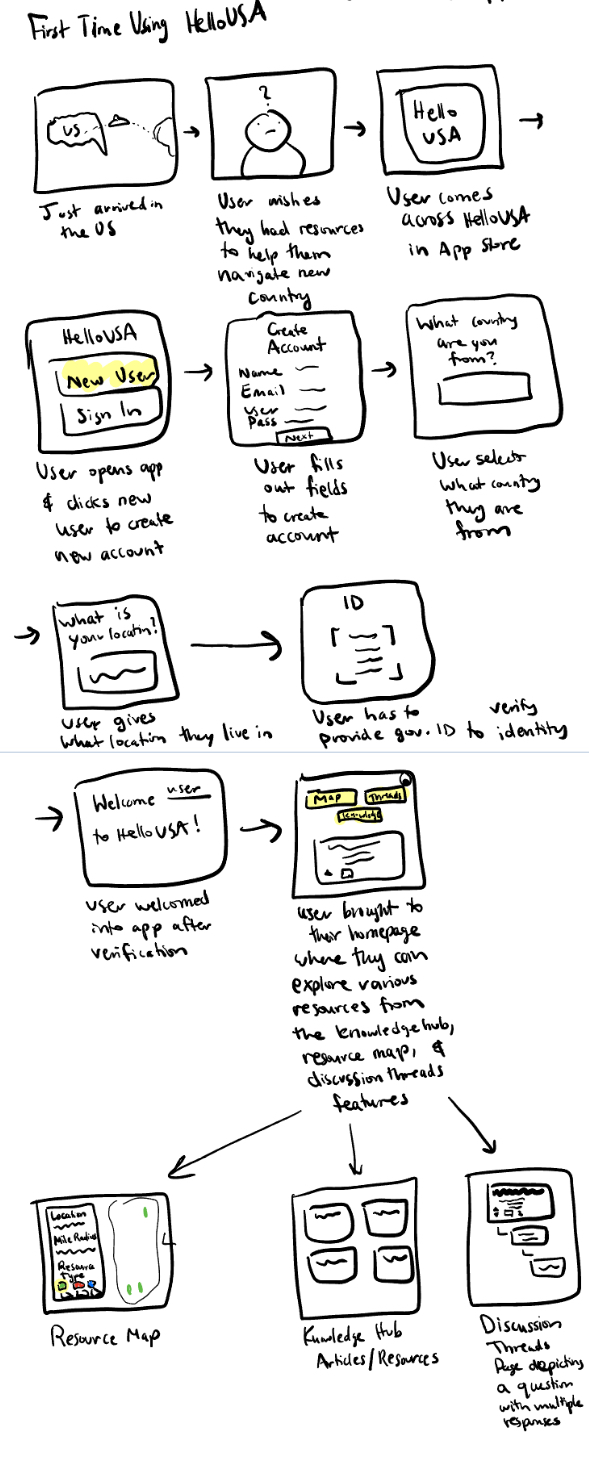 First Time Using HelloUSA
US
Just arrived in
the US
?
User wishes
they had resources
to help them
navigate new
country
Hello
USA
User comes
across HelloUSA
in App Store
HelloUSA
New User
Sign In
User opens app
& clicks new
user to create
new account
Create
Account
Name
Email
User
Pass
Next
User fills
out fields
to create
account
What country
are you
from?
User selects
what country
they are
from
What is
your locatin?
User gives
what location they live in
ID
User has to verify
provide gov. ID to identity
Welcome user
to HelloUSA!
user welcomed
into app after
verification
Map
Threads
Knowledge
user brought to
their homepage
where they can
explore various
resources from
the knowledge hub,
resource map, &
discussion threads
features
Location
Mile Radius
Resource
Type
Resource Map
Knowledge Hub
Articles/Resources
Discussion
Threads
Page depicting
a question
with multiple
responses